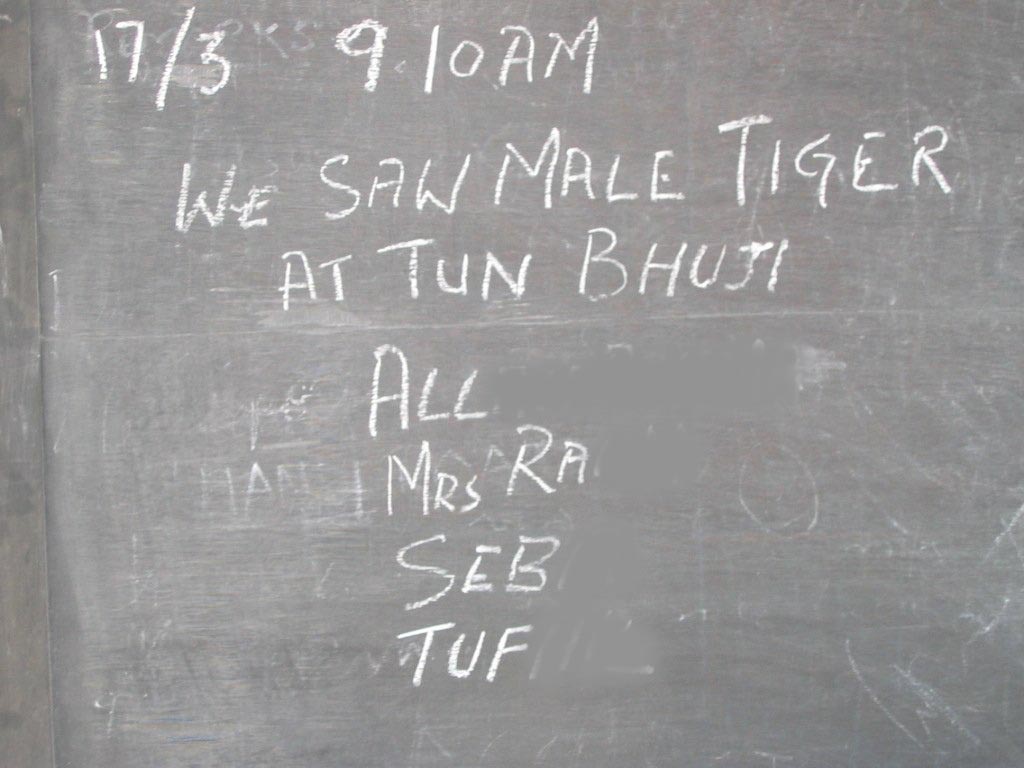 17/3 9.10AM
WE SAW MALE TIGER
AT TUN BHUJI
ALL
MRS RA
SEB
TUF